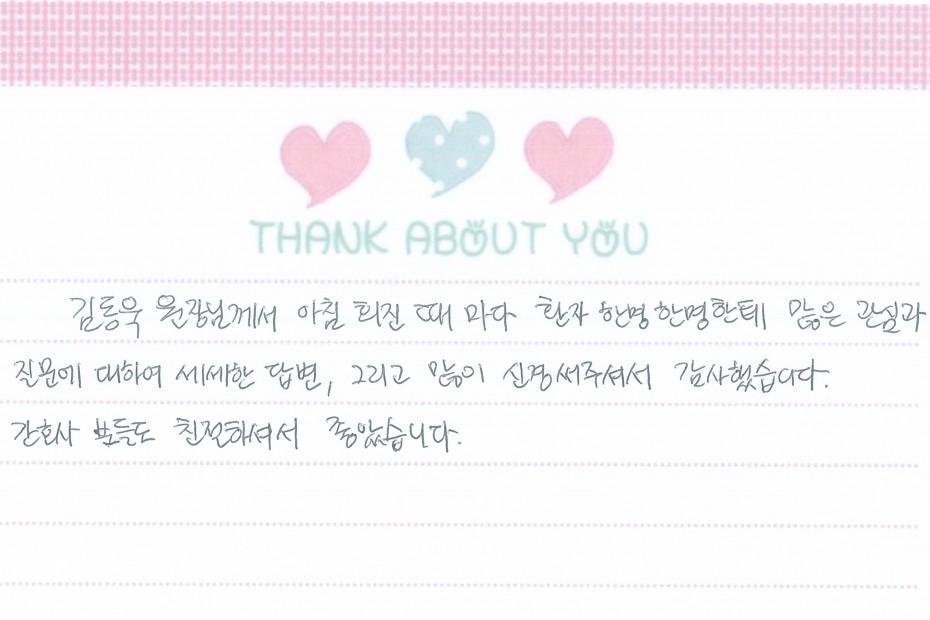 THANK ABOUT YOU
김동욱 원장님께서 아침 회진 때 마다 환자 한명한명한테 많은 관심과
질문에 대하여 세세한 답변, 그리고 많이 신경써주셔서 감사했습니다.
간호사 분들도 친절하셔서 좋았습니다.